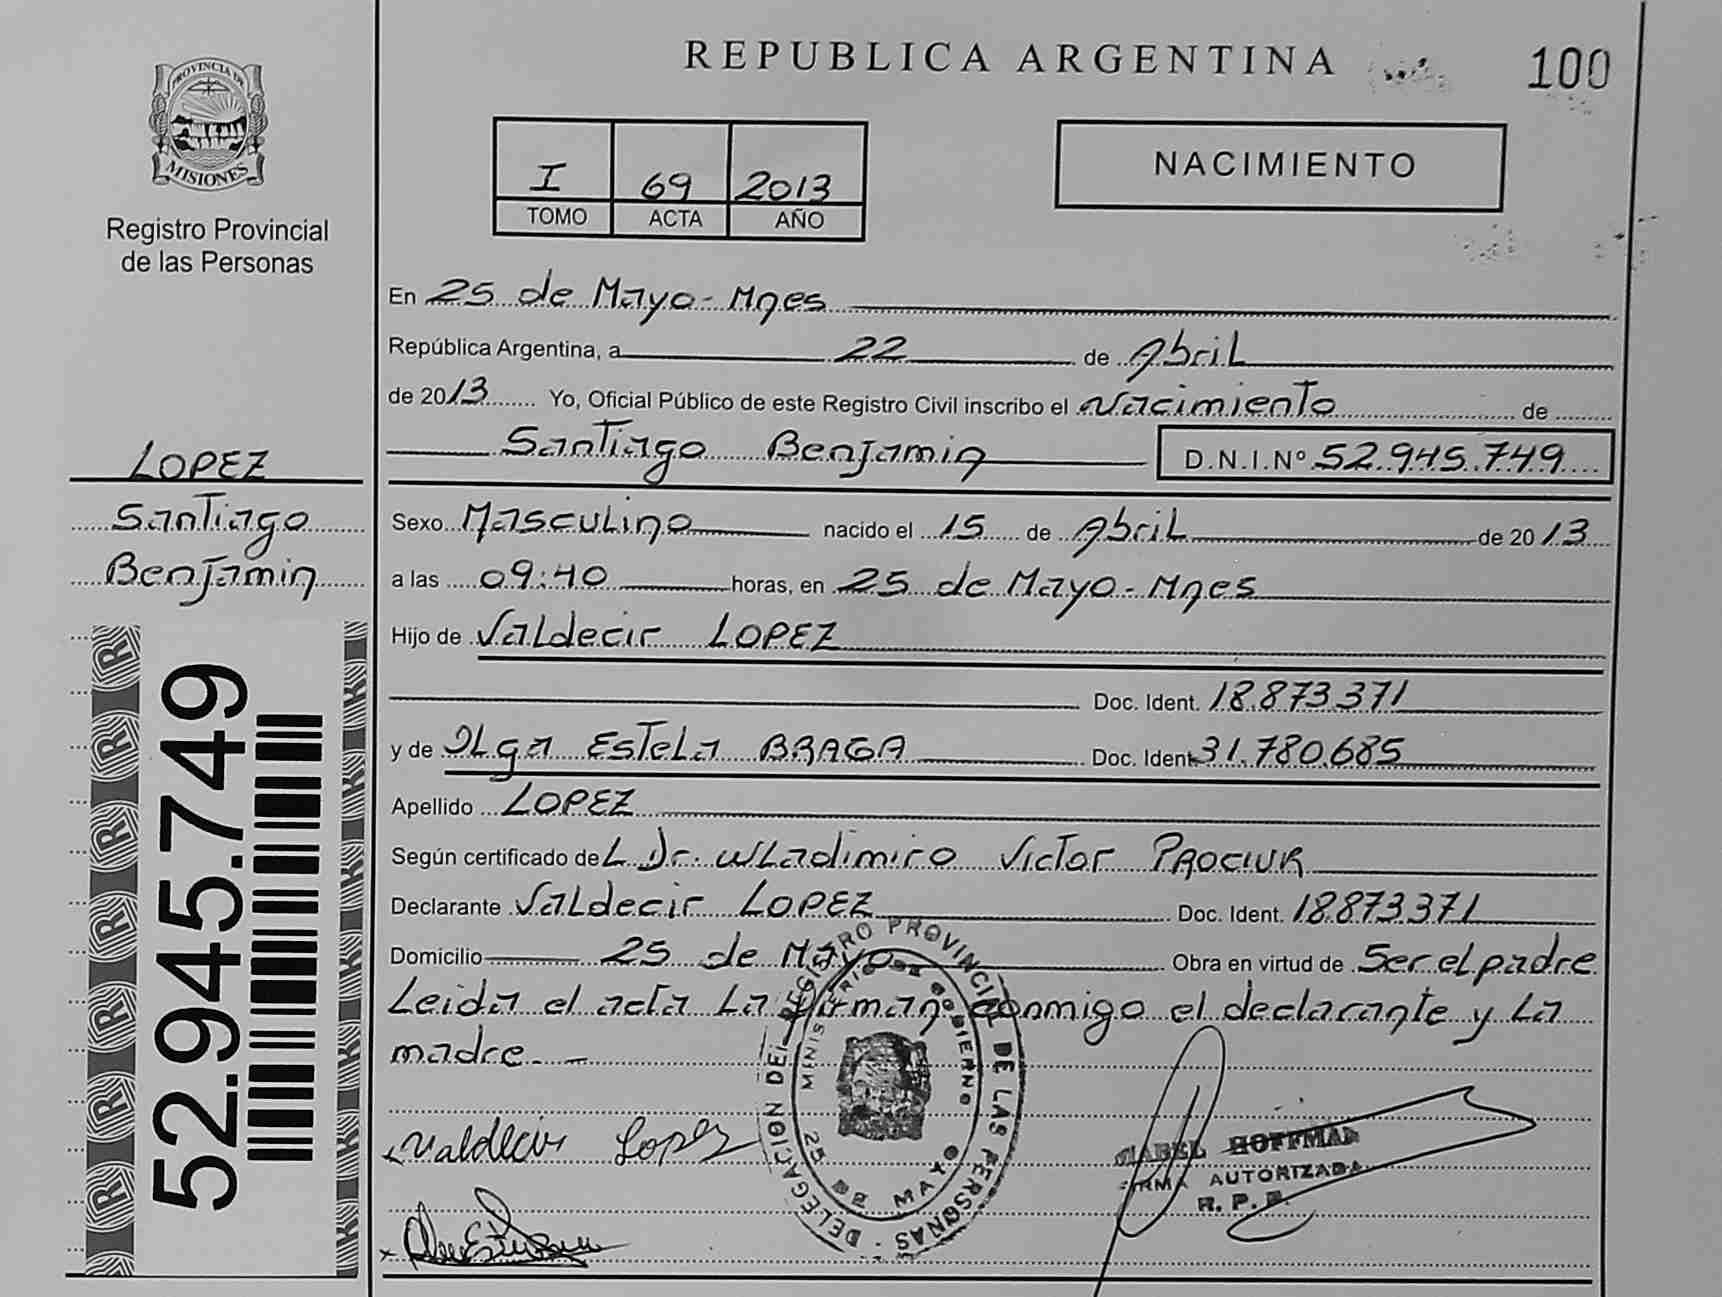 REPUBLICA ARGENTINA
100
PROVINCIA DE
MISIONES
Registro Provincial
de las Personas
I 69 2013
TOMO ACTA AÑO
NACIMIENTO
En 25 de Mayo - Mnes
República Argentina, a 22 de Abril
de 2013 Yo, Oficial Público de este Registro Civil inscribo el Nacimiento de
Santiago Benjamin D.N.I.Nº 52.945.749
LOPEZ
Santiago
Benjamin
Sexo Masculino nacido el 15 de Abril de 2013
a las 09:40 horas, en 25 de Mayo - Mnes
Hijo de Valdecir LOPEZ
Doc. Ident. 18.873.371
y de Olga Estela BRAGA Doc. Ident 31.780.685
Apellido LOPEZ
Según certificado del Dr. Wladimiro Victor PROCIUR
Declarante Valdecir LOPEZ Doc. Ident. 18.873.371
Domicilio 25 de Mayo Obra en virtud de Ser el padre
Leida el acta La firman conmigo el declarante y La
madre.
52.945.749
Valdecir Lopez
DELEGACION DEL REGISTRO PROVINCIAL DE LAS PERSONAS
MINISTERIO DE GOBIERNO
25 DE MAYO
HOFFMAN
FIRMA AUTORIZADA
R. P. P.